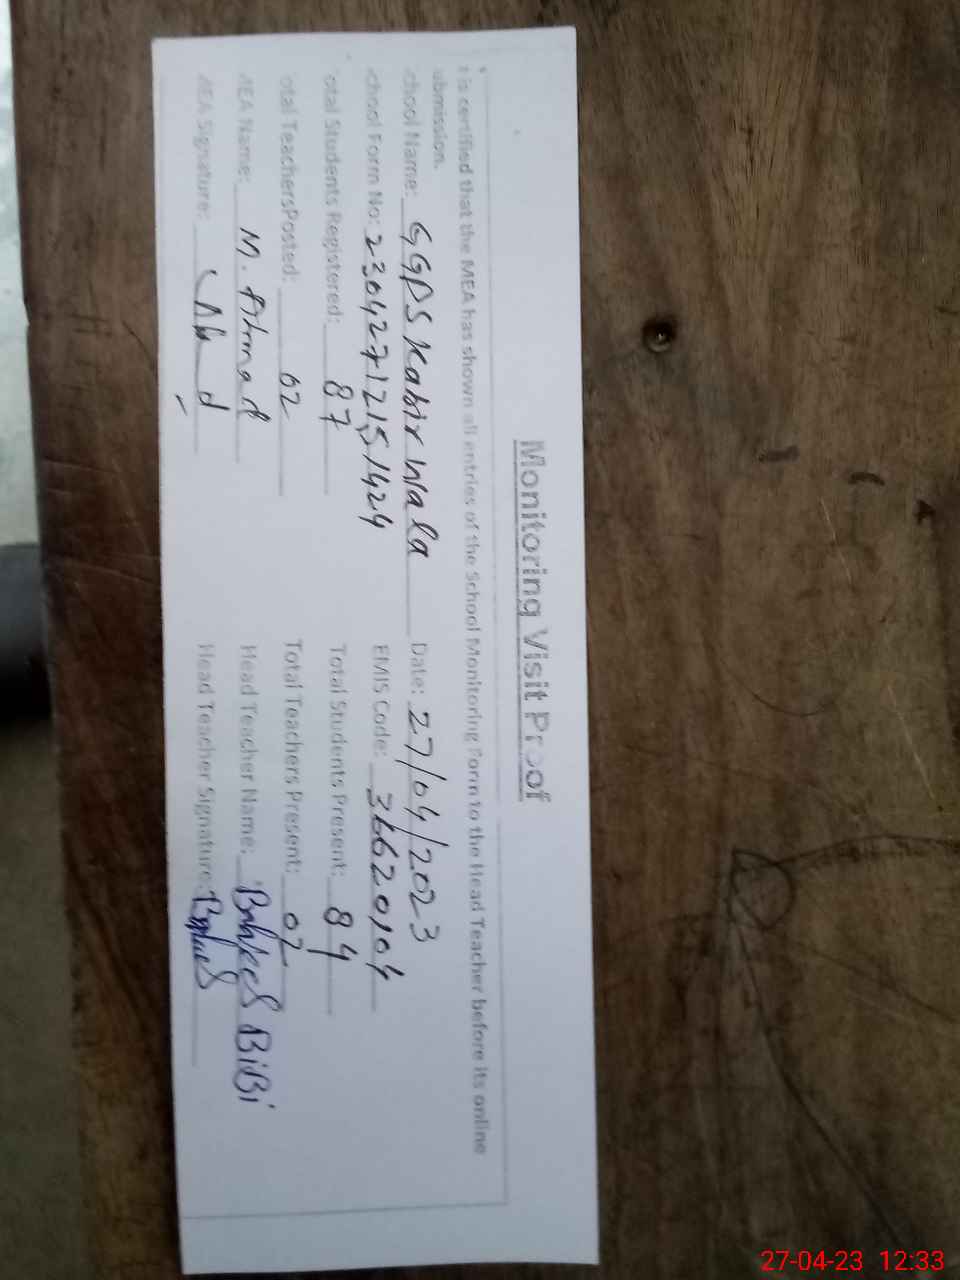 Monitoring Visit Proof
t is certified that the MEA has shown all entries of the School Monitoring Form to the Head Teacher before its online
ubmission.
chool Name: GGPS Kabir wala Date: 27/04/2023
chool Form No: 23042712151424 EMIS Code: 36620104
otal Students Registered: 87 Total Students Present: 84
otal TeachersPosted: 02 Total Teachers Present: 02
MEA Name: M. Ahmad Head Teacher Name: BiBi
MEA Signature: Head Teacher Signature:
27-04-23 12:33